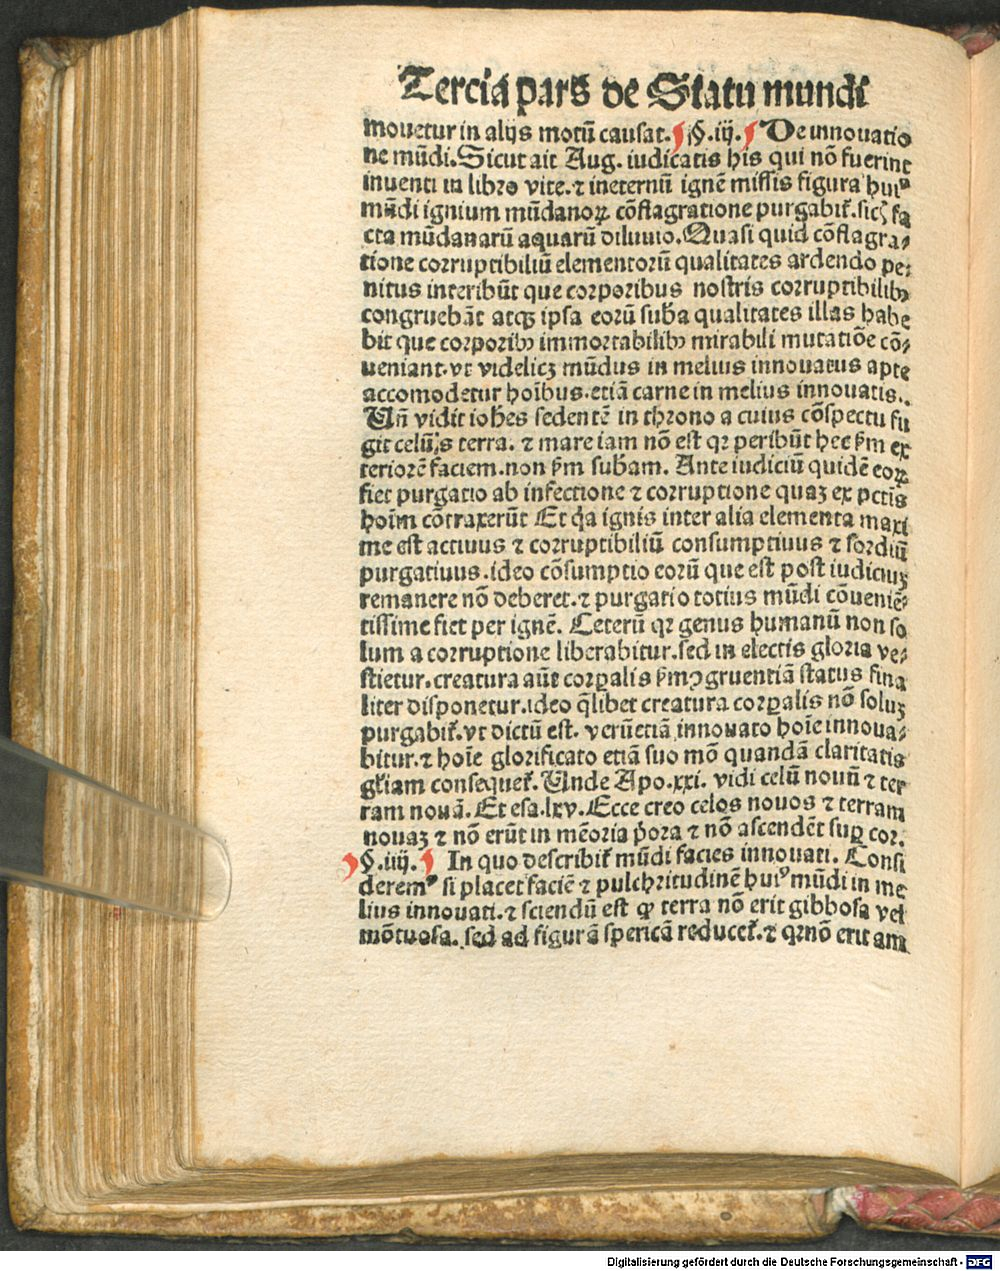 Tercia pars de Statu mundi
mouetur in alijs motū causat. §.iij. De innouatio
ne mūdi. Sicut ait Aug. iudicatis his qui nō fuerint
inuenti in libro vite. ⁊ ineternū ignē missis figura huiꝰ
mūdi ignium mūdanoꝝ cōflagratione purgabit̄. sicꝫ fa
cta mūdanarū aquarū diluuio. Quasi quid cōflagra⸗
tione corruptibiliū elementorū qualitates ardendo pe⸗
nitus interibūt que corporibus nostris corruptibilibꝫ
congruebāt atqꝫ ipsa eorū sub̄a qualitates illas habe
bit que corporibꝫ immortabilibꝫ mirabili mutatiōe cō⸗
ueniant. vt videlicꝫ mūdus in melius innouatus apte
accomodetur hoībus. etiā carne in melius innouatis.
Un̄ vidit ioh̄es sedentē in throno a cuius cōspectu fu
git celū ⁊ terra. ⁊ mare iam nō est qꝛ peribūt hec s̄m ex
teriorē faciem. non s̄m sub̄am. Ante iudiciū quidē eoꝝ
fiet purgatio ab infectione ⁊ corruptione quaꝫ ex pctīs
hoīm cōtraxerūt Et q̄a ignis inter alia elementa maxi
me est actiuus ⁊ corruptibiliū consumptiuus ⁊ sordiū
purgatiuus. ideo cōsumptio eorū que est post iudiciuꝫ
remanere nō deberet. ⁊ purgatio totius mūdi cōueniē⸗
tissime fiet per ignē. Ceterū qꝛ genus humanū non so
lum a corruptione liberabitur. sed in electis gloria ve⸗
stietur. creatura aūt corꝑalis s̄m ꝯgruentiā status fina
liter disponetur. ideo q̄libet creatura corꝑalis nō soluꝫ
purgabit̄. vt dictū est. verūetiā innouato hoīe innoua⸗
bitur. ⁊ hoīe glorificato etiā suo mō quandā claritatis
gl̄iam consequet̄. Unde Apo.xxi. vidi celū nouū ⁊ ter
ram nouā. Et esa.lxv. Ecce creo celos nouos ⁊ terram
nouaꝫ ⁊ nō erūt in mēoria p̄ora ⁊ nō ascendēt suꝑ cor.
§.iiij. In quo describit̄ mūdi facies innouati. Consi
deremꝰ si placet faciē ⁊ pulchritudinē huiꝰ mūdi in me
lius innouati. ⁊ sciendū est ꝙ terra nō erit gibbosa vel
mōtuosa. sed ad figurā spericā reducet̄. ⁊ qꝛ nō erit am
Digitalisierung gefördert durch die Deutsche Forschungsgemeinschaft - DFG